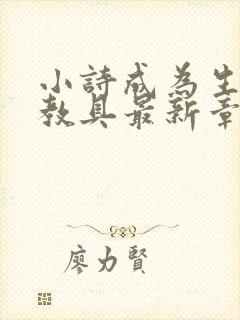 小詩成為生
教具最新章
廖力賢